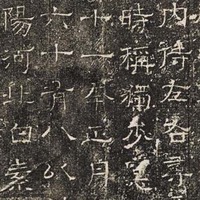 内 左
時稱獨步
十一年正月
六十有八以
陽河北白素